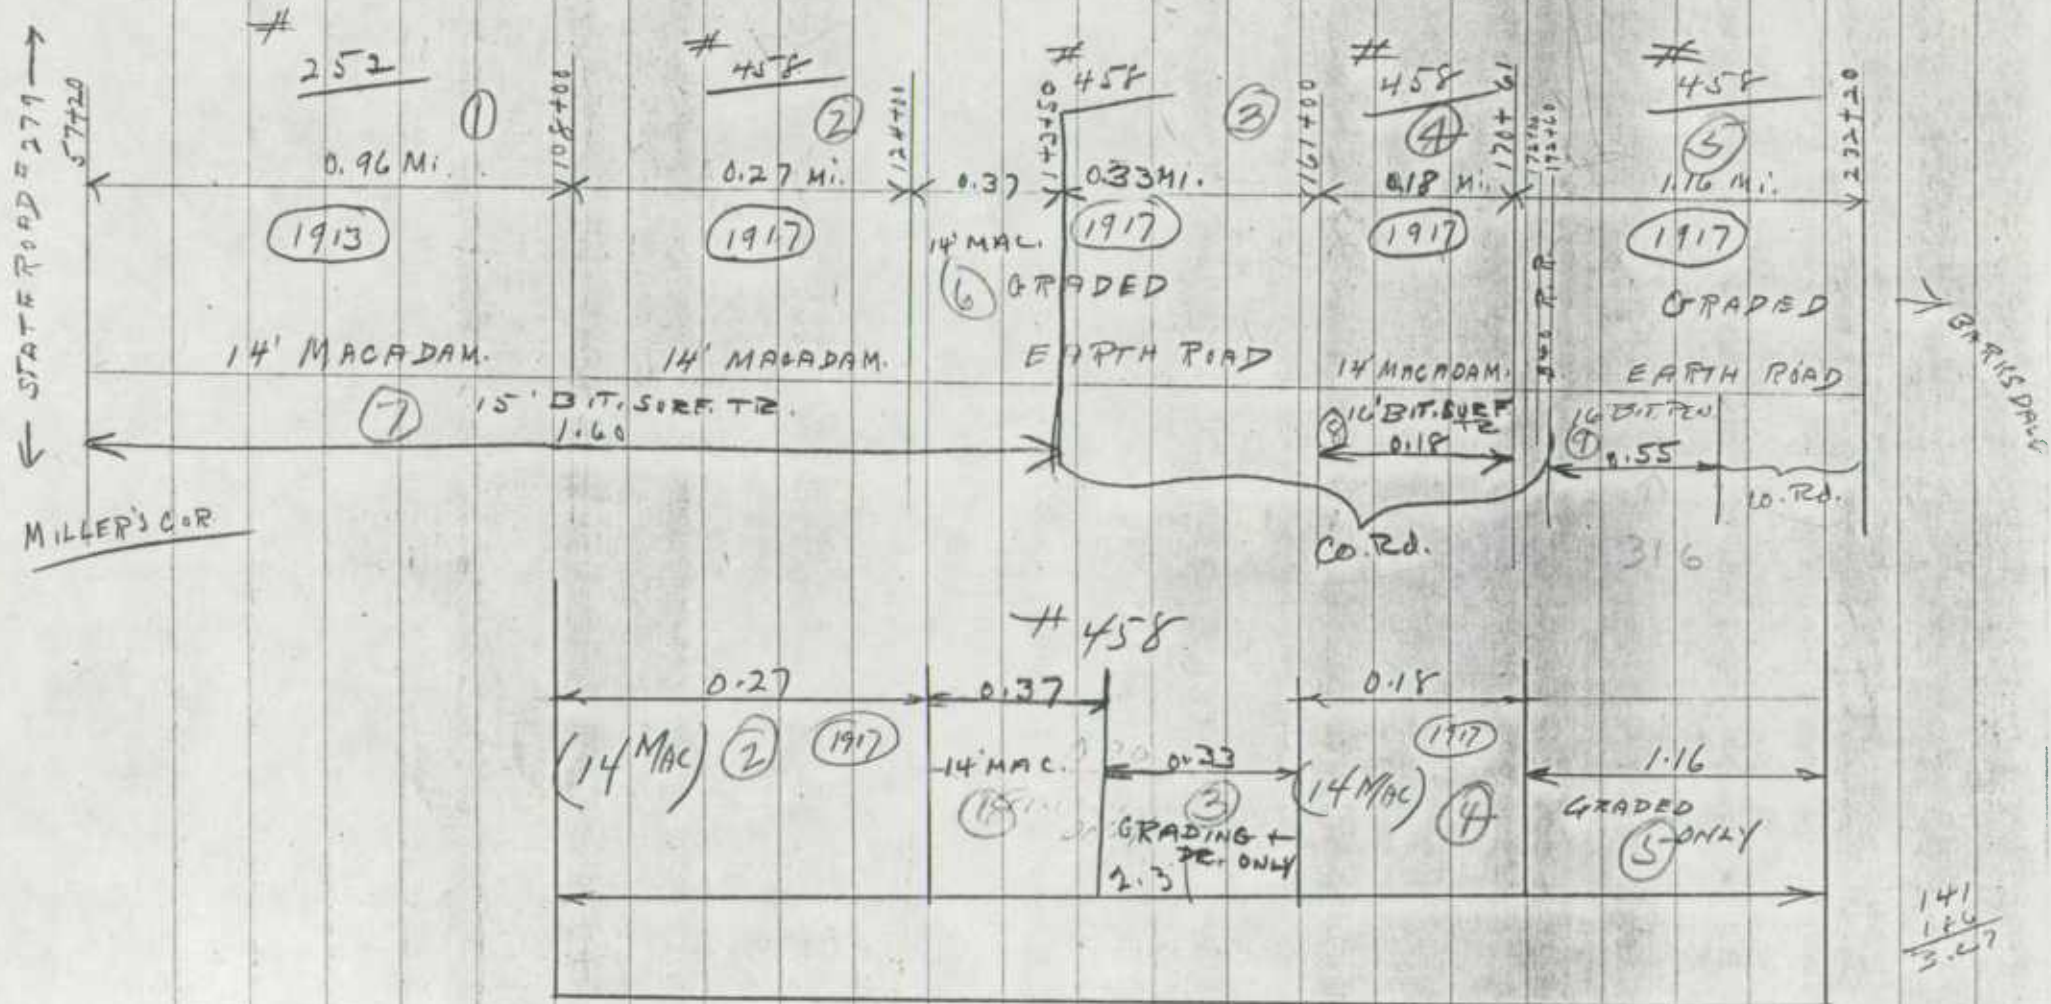 ← STATE ROAD # 279 →
57+20
# 252
①
0.96 Mi.
1913
14' MACADAM.
108+00
# 458
②
0.27 Mi.
1917
14' MACADAM.
124+00
0.37
14' MAC.
⑥
143+50
# 458
③
0.33 MI.
1917
GRADED
EARTH ROAD
161+00
# 458
④
0.18 Mi.
1917
14' MACADAM.
170+61
172+60
R.R.
# 458
⑤
1.16 Mi.
1917
GRADED
EARTH ROAD
232+20
→ BARKSDALE
⑦ 15' BIT. SURF. TR.
1.60
16' BIT. SURF TR
0.18
16' BIT PEN
⑨
0.55
CO. Rd.
CO. Rd.
MILLER'S COR
316
# 458
0.27
(14' MAC) ② 1917
0.37
14' MAC.
0.33
③
GRADING +
DR. ONLY
2.31
0.18
1917
(14 MAC) ④
1.16
GRADED
⑤ ONLY
141